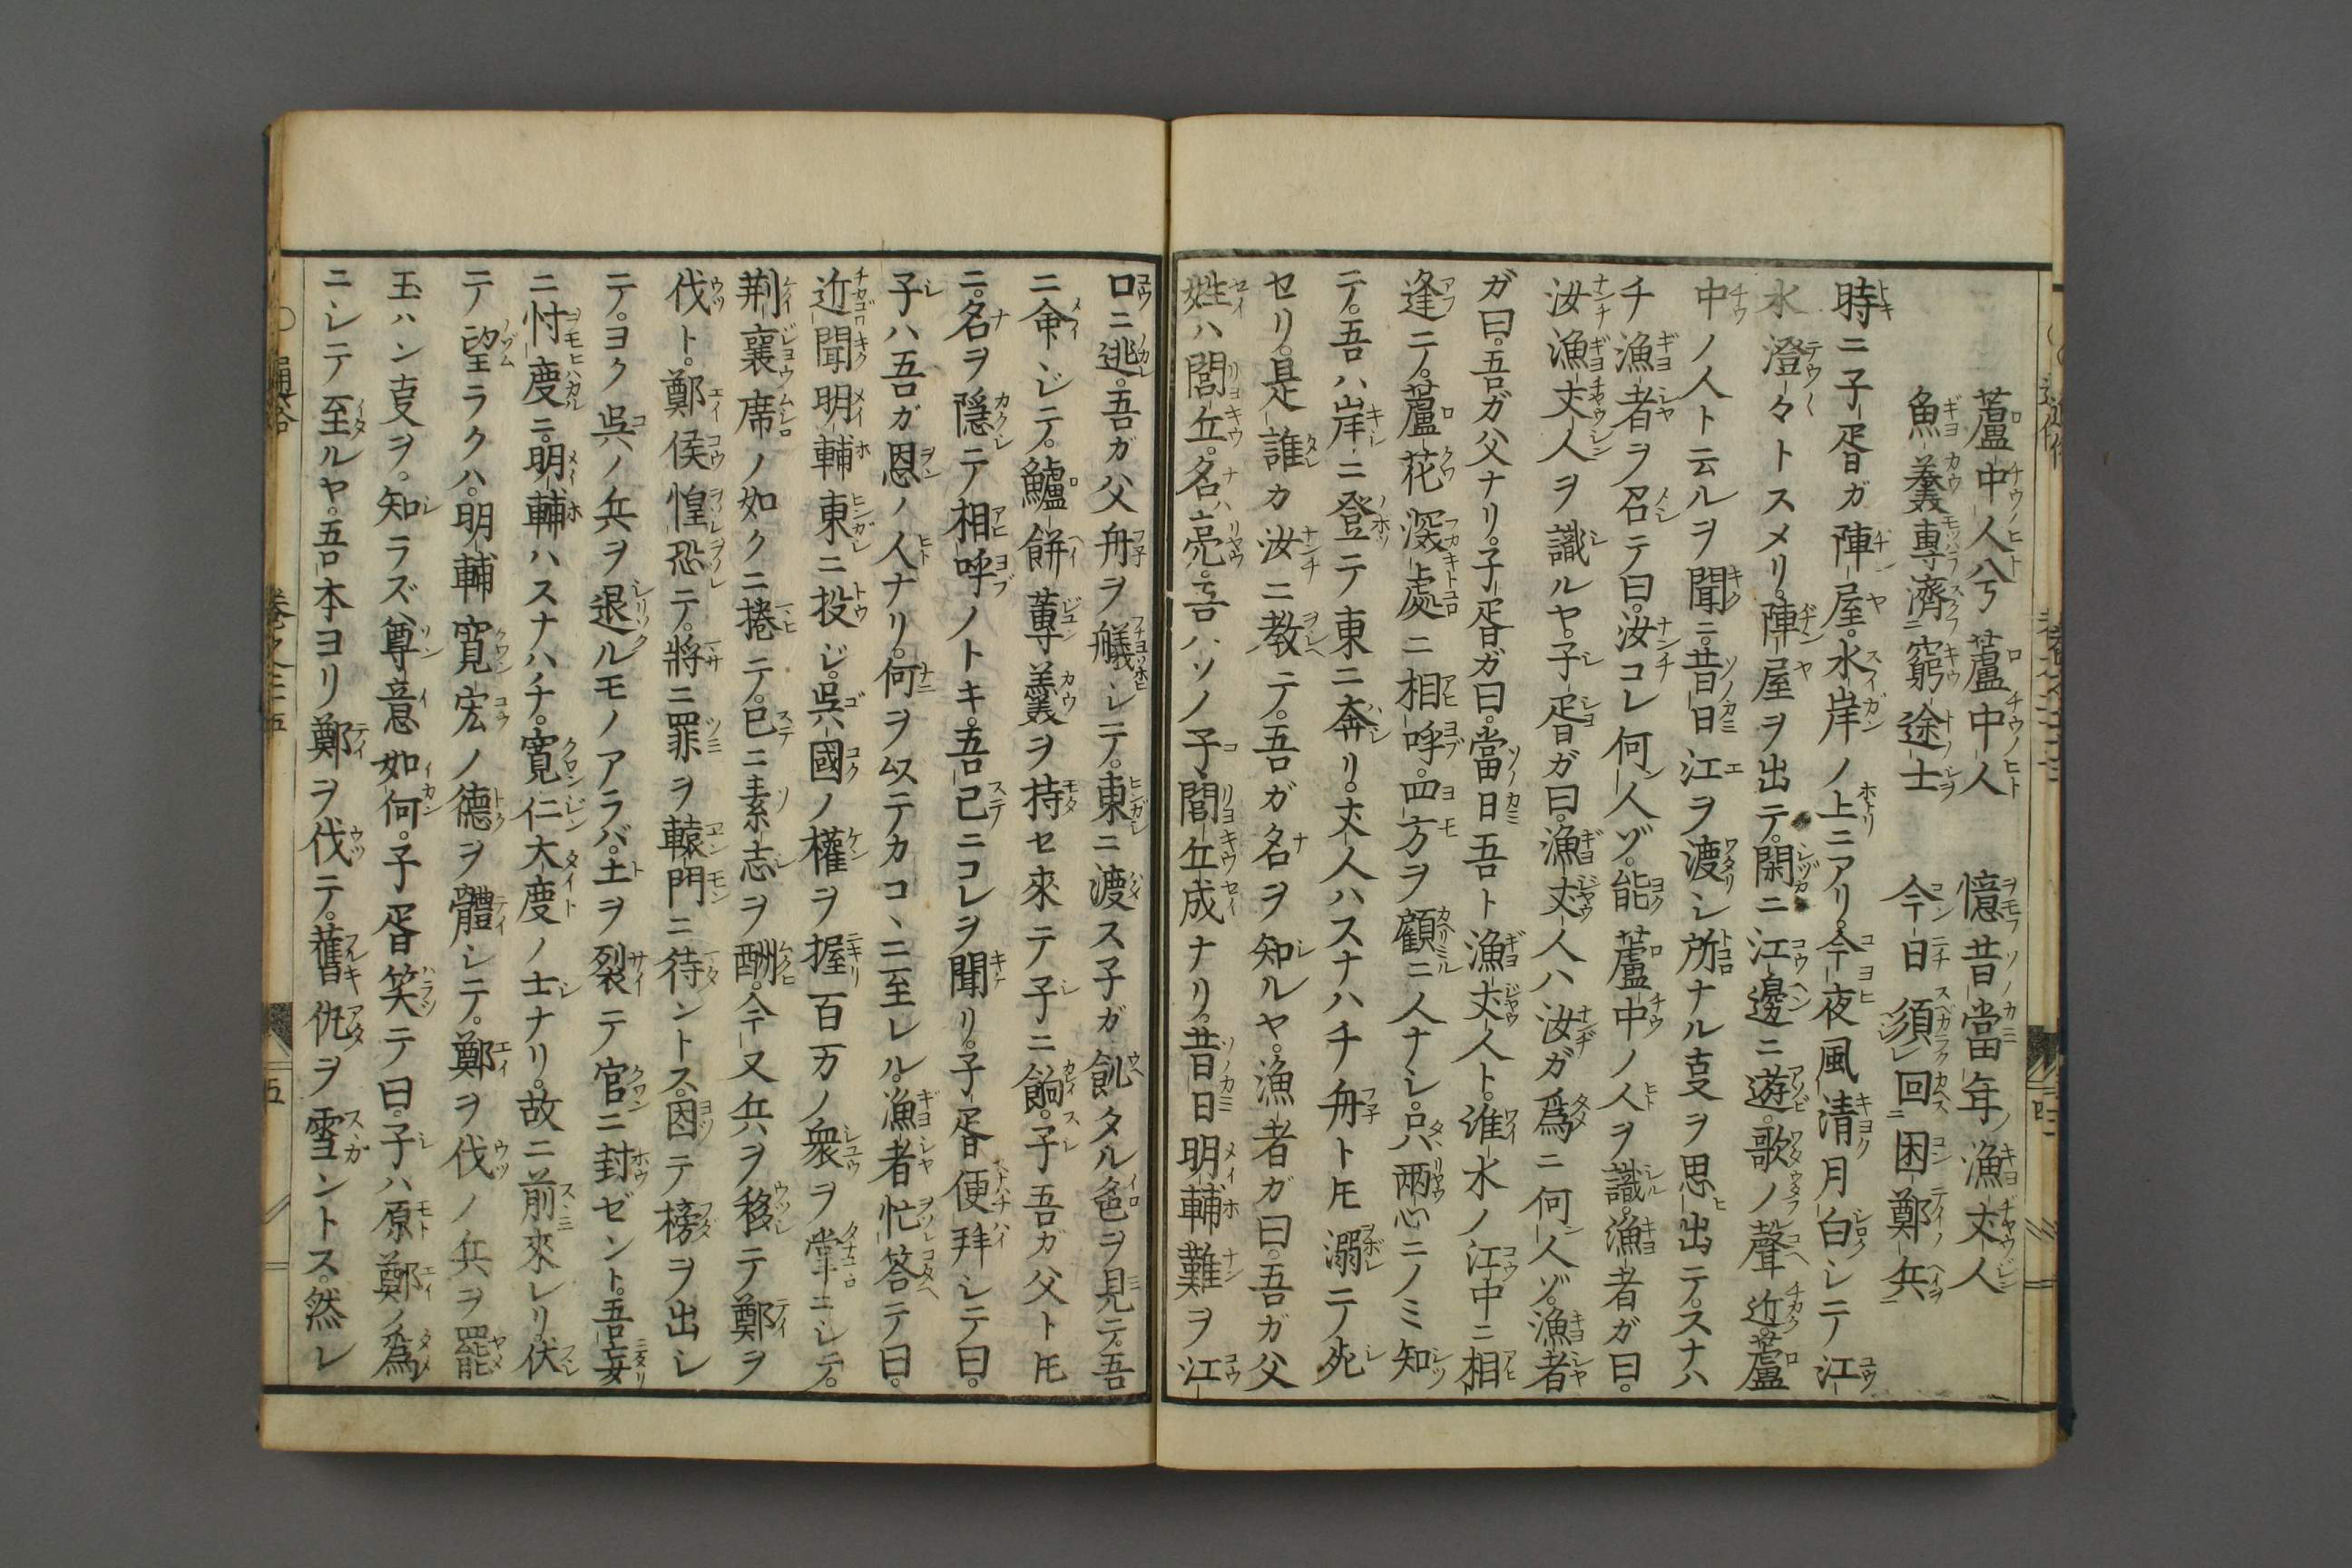 蘆中人兮蘆中人 憶昔當年漁丈人
魚羹專濟窮途士 今日須回困鄭兵
時ニ子胥ガ陣屋。水岸ノ上ニアリ。今夜風清月白シテ江
水澄々トスメリ。陣屋ヲ出テ。閑ニ江邊ニ遊。歌ノ聲近。蘆
中ノ人ト云ルヲ聞ニ。昔日江ヲ渡シ所ナル㕝ヲ思出テ。スナハ
チ漁者ヲ召テ曰。汝コレ何人ゾ。能蘆中ノ人ヲ識。漁者ガ曰。
汝漁丈人ヲ識ルヤ。子胥ガ曰。漁丈人ハ汝ガ爲ニ何人ゾ。漁者
ガ曰。吾ガ父ナリ。子胥ガ曰。當日吾ト漁丈人ト。淮水ノ江中ニ相
逢ニ。蘆花深處ニ相呼。四方ヲ顧ニ人ナシ。只両心ニノミ知
テ。吾ハ岸ニ登テ東ニ奔リ。丈人ハスナハチ舟トトモ溺テ死
セリ。是誰カ汝ニ教テ。吾ガ名ヲ知ルヤ。漁者ガ曰。吾ガ父
姓ハ閭丘。名ハ亮。吾ハソノ子閭丘成ナリ。昔日明輔難ヲ江
口ニ逃。吾ガ父舟ヲ艤シテ。東ニ渡ス子ガ飢タル色ヲ見テ。吾
ニ命ジテ。鱸餅蓴羹ヲ持セ來テ子ニ餉。子吾ガ父トトモ
ニ。名ヲ隠テ相呼ノトキ。吾已ニコレヲ聞リ。子胥便拜シテ曰。
子ハ吾ガ恩ノ人ナリ。何ヲ以テカコヽニ至レル。漁者忙答テ曰。
近聞明輔東ニ投ジ。呉國ノ權ヲ握百万ノ衆ヲ掌ニシテ。
荆襄席ノ如クニ捲テ。已ニ素志ヲ酬。今又兵ヲ移テ鄭ヲ
伐ト。鄭侯惶恐テ。將ニ罪ヲ轅門ニ待ントス。因テ榜ヲ出シ
テ。ヨク呉ノ兵ヲ退ルモノアラバ。土ヲ裂テ官ニ封ゼント。吾妄
ニ忖度ニ。明輔ハスナハチ。寛仁大度ノ士ナリ。故ニ前來レリ。伏
テ望ラクハ。明輔寛宏ノ德ヲ體シテ。鄭ヲ伐ノ兵ヲ罷
玉ハン㕝ヲ。知ラズ尊意如何。子胥笑テ曰。子ハ原鄭ノ爲
ニシテ至ルヤ。吾本ヨリ鄭ヲ伐テ。舊仇ヲ雪ントス。然レ
五